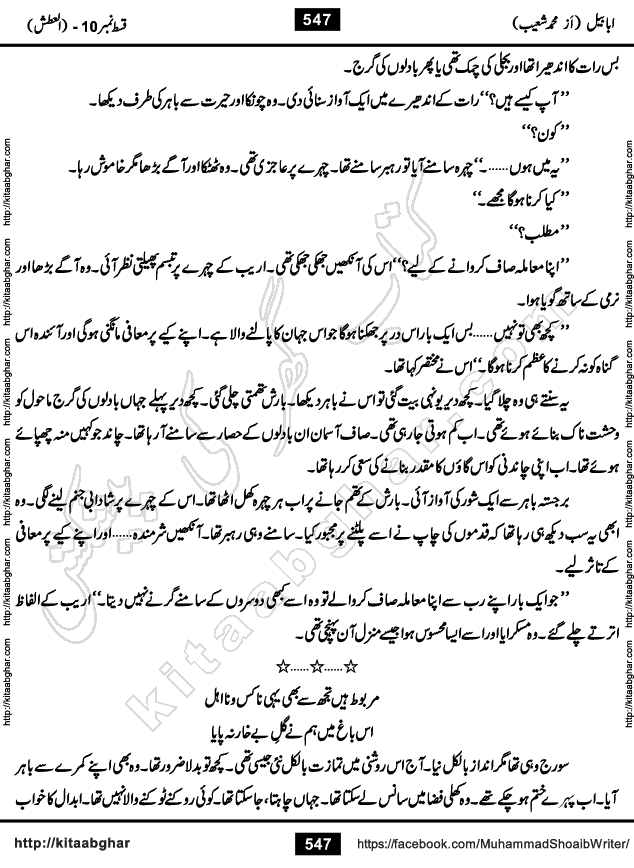 قسط نمبر 10 - (العطش)
547
ابابیل (از محمد شعیب)
بس رات کا اندھیرا تھا اور بجلی کی چمک تھی یا پھر بادلوں کی گرج۔
’’آپ کیسے ہیں؟‘‘ رات کے اندھیرے میں ایک آواز سنائی دی۔ وہ چونکا اور حیرت سے باہر کی طرف دیکھا۔
’’کون؟‘‘
’’یہ میں ہوں......۔‘‘ چہرہ سامنے آیا تو رہبر سامنے تھا۔ چہرے پر عاجزی تھی۔ وہ ٹھٹکا اور آگے بڑھا مگر خاموش رہا۔
’’کیا کرنا ہوگا مجھے۔‘‘
’’مطلب؟‘‘
’’اپنا معاملہ صاف کروانے کے لیے؟‘‘ اس کی آنکھیں جھکی جھکی تھی۔ اریب کے چہرے پر تبسم پھیلتی نظر آئی۔ وہ آگے بڑھا اور
نرمی کے ساتھ گویا ہوا۔
’’کچھ بھی تو نہیں......بس ایک بار اس در پر جھکنا ہوگا جو اس جہان کا پالنے والا ہے۔ اپنے کیے پر معافی مانگنی ہوگی اور آئندہ اس
گناہ کو نہ کرنے کا عظم کرنا ہوگا۔‘‘ اس نے مختصر کہا تھا۔
یہ سنتے ہی وہ چلا گیا۔ کچھ دیر یونہی بیت گئی تو اس نے باہر دیکھا۔ بارش تھمتی چلی گئی۔ کچھ دیر پہلے جہاں بادلوں کی گرج ماحول کو
وحشت ناک بنائے ہوئے تھی۔ اب کم ہوتی جا رہی تھی۔ صاف آسمان ان بادلوں کے حصار سے سامنے آرہا تھا۔ چاند جو کہیں منہ چھپائے
ہوئے تھا۔ اب اپنی چاندنی کو اس گاؤں کا مقدر بنانے کی سعی کر رہا تھا۔
برجستہ باہر سے ایک شور کی آواز آئی۔ بارش کے تھم جانے پر اب ہر چہرہ کھل اٹھا تھا۔ اس کے چہرے پر شادابی جنم لینے لگی۔ وہ
ابھی یہ سب دیکھ ہی رہا تھا کہ قدموں کی چاپ نے اسے پلٹنے پر مجبور کیا۔ سامنے وہی رہبر تھا۔ آنکھیں شرمندہ......اور اپنے کیے پر معافی
کے تاثر لیے۔
’’جو ایک بار اپنے رب سے اپنا معاملہ صاف کروا لے تو وہ اسے کبھی دوسروں کے سامنے گرنے نہیں دیتا۔‘‘ اریب کے الفاظ
اترتے چلے گئے۔ وہ مسکرایا اور اسے ایسا محسوس ہوا جیسے منزل آن پہنچی تھی۔
☆......☆......☆
مربوط ہیں تجھ سے بھی یہی ناکس و نااہل
اس باغ میں ہم نے گلِ بے خار نہ پایا
سورج وہی تھا مگر انداز بالکل نیا۔ آج اس روشنی میں تمازت بالکل نئی جیسی تھی۔ کچھ تو بدلا ضرور تھا۔ وہ بھی اپنے کمرے سے باہر
آیا۔ اب پہرے ختم ہوچکے تھے۔ وہ کھلی فضا میں سانس لے سکتا تھا۔ جہاں چاہتا، جا سکتا تھا۔ کوئی روکنے ٹوکنے والا نہیں تھا۔ ابدال کا خواب
http://kitaabghar
547
https://facebook.com/MuhammadShoaibWriter/
http://kitaabghar.com http://kitaabghar.com http://kitaabghar.com http://kitaabghar.com http://kitaabghar.com http://kitaabghar.com
http://kitaabghar.com http://kitaabghar.com http://kitaabghar.com http://kitaabghar.com http://kitaabghar.com http://kitaabghar.com
کتاب گھر کی پیشکش
kitaabghar.com